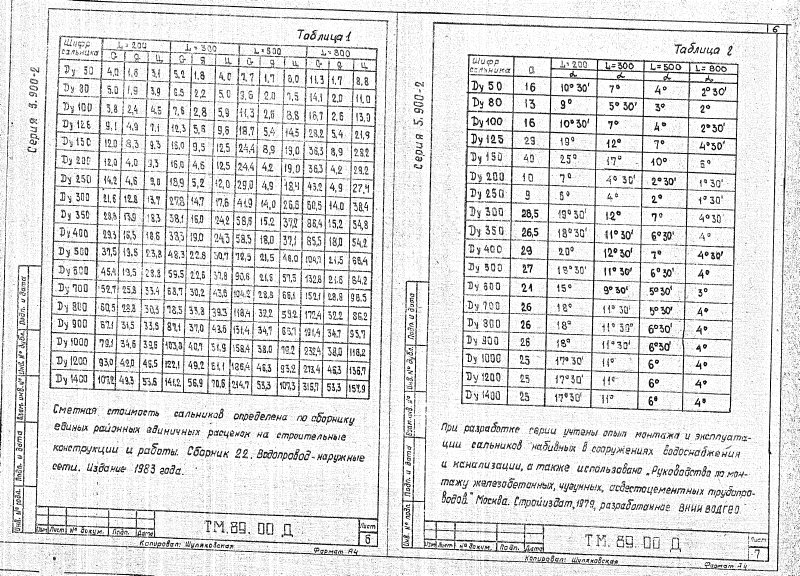 Таблица 1
Шифр сальника L=200 L=300 L=500 L=800
G Я Ц G Я Ц G Я Ц G Я Ц
Dy 50 4,0 1,6 3,1 5,2 1,8 4,0 1,7 6,0 11,3 1,7 8,8
Dy 80 5,0 1,9 3,9 6,5 2,2 5,0 9,6 2,0 7,5 14,1 2,0 11,0
Dy 100 5,8 2,4 4,5 7,6 2,8 5,9 11,3 2,6 8,8 16,7 2,6 13,0
Dy 125 9,1 4,9 7,1 12,3 5,6 9,6 18,7 5,4 14,5 28,2 5,4 21,9
Dy 150 12,0 8,3 9,3 16,0 9,5 12,5 24,4 8,9 19,0 36,3 8,9 28,2
Dy 200 12,0 4,0 9,3 16,0 4,6 12,5 24,4 4,2 19,0 36,3 4,2 28,2
Dy 250 14,2 4,6 9,0 18,9 5,2 12,0 29,0 4,9 18,4 43,2 4,9 27,4
Dy 300 21,6 12,8 13,7 14,7 17,6 41,9 14,0 26,6 60,5 14,0 38,4
Dy 350 28,8 13,9 18,3 38,1 16,0 24,2 58,6 15,2 37,2 86,4 15,2 54,8
Dy 400 29,3 16,5 18,6 19,0 24,3 58,5 18,0 37,1 85,5 18,0 54,2
Dy 500 37,5 19,5 23,8 48,3 22,8 30,7 72,5 21,5 46,0 21,5 66,4
Dy 600 45,4 19,5 28,8 59,5 22,6 37,8 90,6 21,6 57,5 132,8 21,6 84,2
Dy 700 52,7 25,8 33,4 68,7 30,2 43,6 104,2 28,8 66,1 152,1 28,8 96,5
Dy 800 60,5 28,8 30,3 78,5 33,8 39,3 118,4 32,2 59,2 172,4 32,2 86,2
Dy 900 67,1 31,5 33,5 87,1 37,0 43,6 131,4 34,7 65,7 191,4 34,7 95,7
Dy 1000 79,1 34,6 39,6 103,8 40,7 51,9 158,4 38,0 79,2 232,4 38,0 116,2
Dy 1200 93,0 42,0 46,5 122,1 49,2 61,1 186,4 46,3 93,2 273,4 46,3 136,7
Dy 1400 107,2 49,3 53,6 141,2 56,9 70,6 214,7 53,3 107,3 315,7 53,3 157,9
Сметная стоимость сальников определена по сборнику
единых районных единичных расценок на строительные
конструкции и работы. Сборник 22. Водопровод-наружные
сети. Издание 1983 года.
Серия 5.900-2
Инв.№ подл. Подп. и дата Взам. инв.№ Инв.№ дубл. Подп. и дата
Изм Лист № докум. Подп. Дата
ТМ.89.00 Д
Лист
6
Копировал: Шуляковская Формат А4
6
Таблица 2
Шифр сальника a L=200 L=300 L=500 L=800
α α α α
Dy 50 16 10°30' 7° 4° 2°30'
Dy 80 13 9° 5°30' 3° 2°
Dy 100 16 10°30' 7° 4° 2°30'
Dy 125 29 19° 12° 7° 4°30'
Dy 150 40 25° 17° 10° 6°
Dy 200 10 7° 4°30' 2°30' 1°30'
Dy 250 9 6° 4° 2° 1°30'
Dy 300 28,5 19°30' 12° 7° 4°30'
Dy 350 26,5 18°30' 11°30' 6°30' 4°
Dy 400 29 20° 12°30' 7° 4°30'
Dy 500 27 18°30' 11°30' 6°30' 4°
Dy 600 21 15° 9°30' 5°30' 3°
Dy 700 26 18° 11°30' 6°30' 4°
Dy 800 26 18° 11°30' 6°30' 4°
Dy 900 26 18° 11°30' 6°30' 4°
Dy 1000 25 17°30' 11° 6° 4°
Dy 1200 25 17°30' 11° 6° 4°
Dy 1400 25 17°30' 11° 6° 4°
При разработке серии учтены опыт монтажа и эксплуата-
ции сальников набивных в сооружениях водоснабжения
и канализации, а также использовано „Руководство по мон-
тажу железобетонных, чугунных, асбестоцементных трубопро-
водов." Москва. Стройиздат, 1979, разработанное ВНИИ ВОДГЕО.
Серия 5.900-2
Инв.№ подл. Подп. и дата Взам. инв.№ Инв.№ дубл. Подп. и дата
Изм Лист № докум. Подп. Дата
ТМ.89.00 Д
Лист
7
Копировал: Шуляковская Формат А4